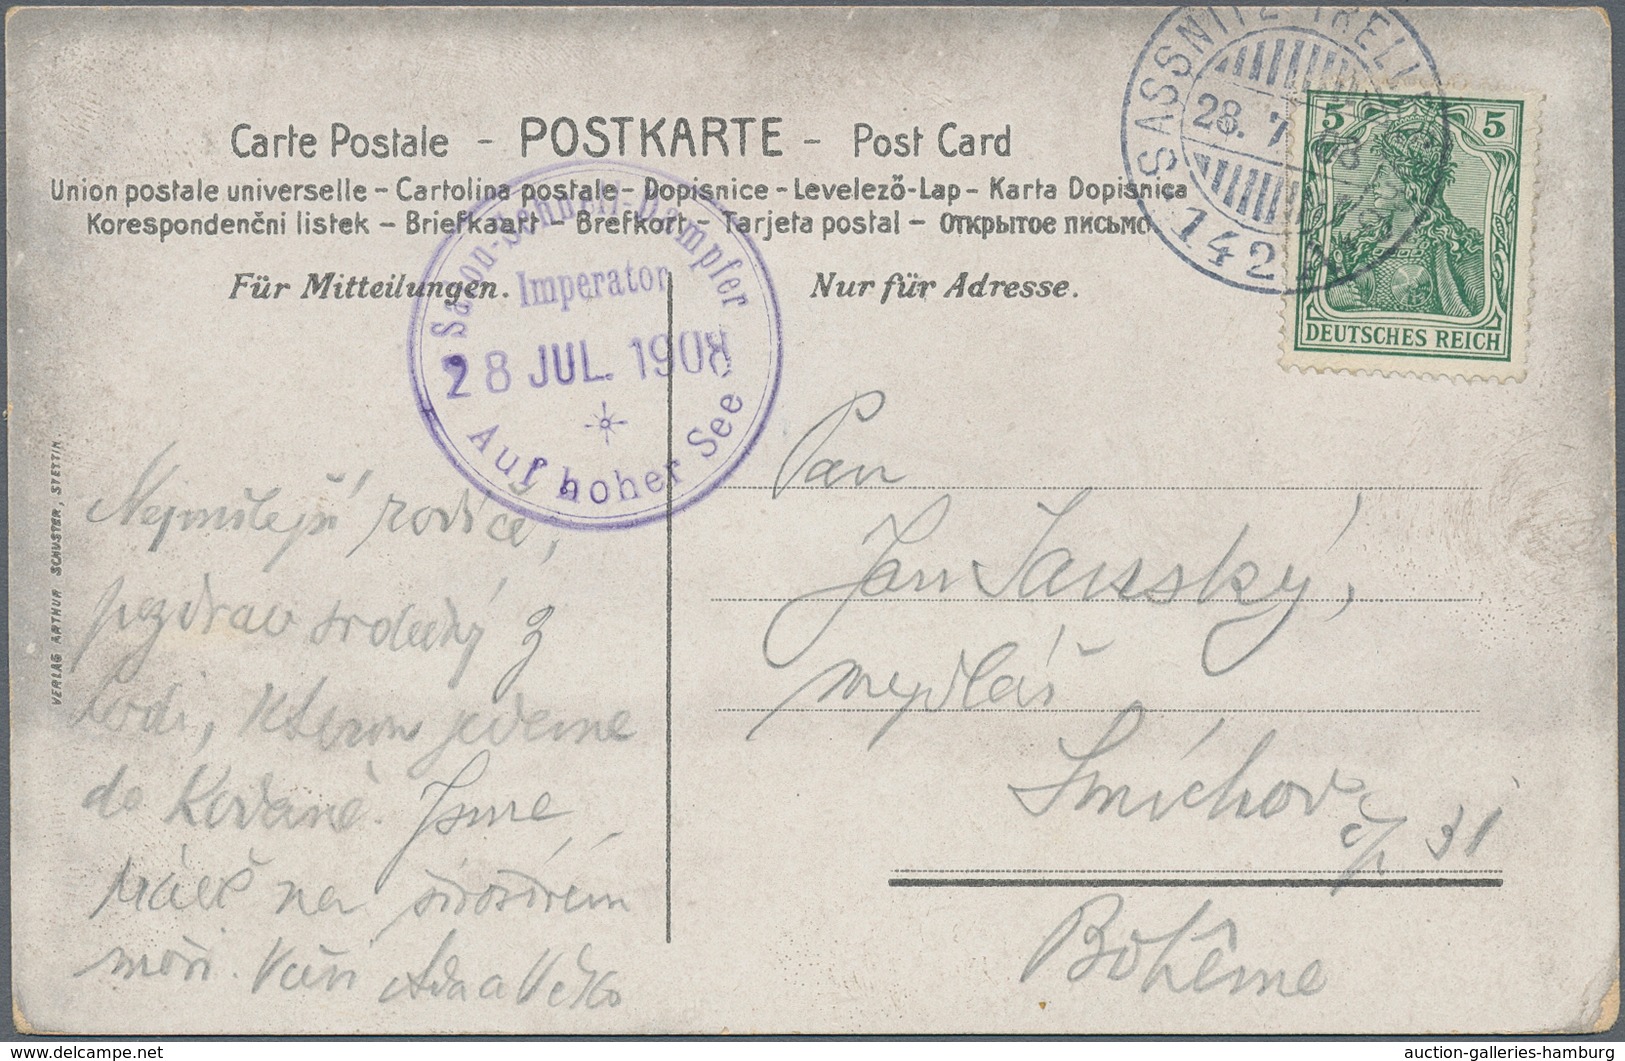 Carte Postale - POSTKARTE - Post Card
Union postale universelle - Cartolina postale - Dopisnice - Levelező-Lap - Karta Dopisnica
Korespondenčni listek - Briefkaart - Brefkort - Tarjeta postal - Открытое письмо
Für Mitteilungen.
Nur für Adresse.
SASSNITZ TRELL
28. 7
142
5 5
DEUTSCHES REICH
Salon-Schnell-Dampfer
Imperator
28 JUL. 1908
Auf hoher See
VERLAG ARTHUR SCHUSTER, STETTIN.
Nejmilejší rodiče,
pozdrav srdečný z
lodi, kterou jedeme
do Kodaně. Jsme
právě na širošírém
moři. Vaši Ada a
Pan
Jan Janský,
mydlář
Smíchov
č/p 31
Bohême
auction-galleries-hamburg